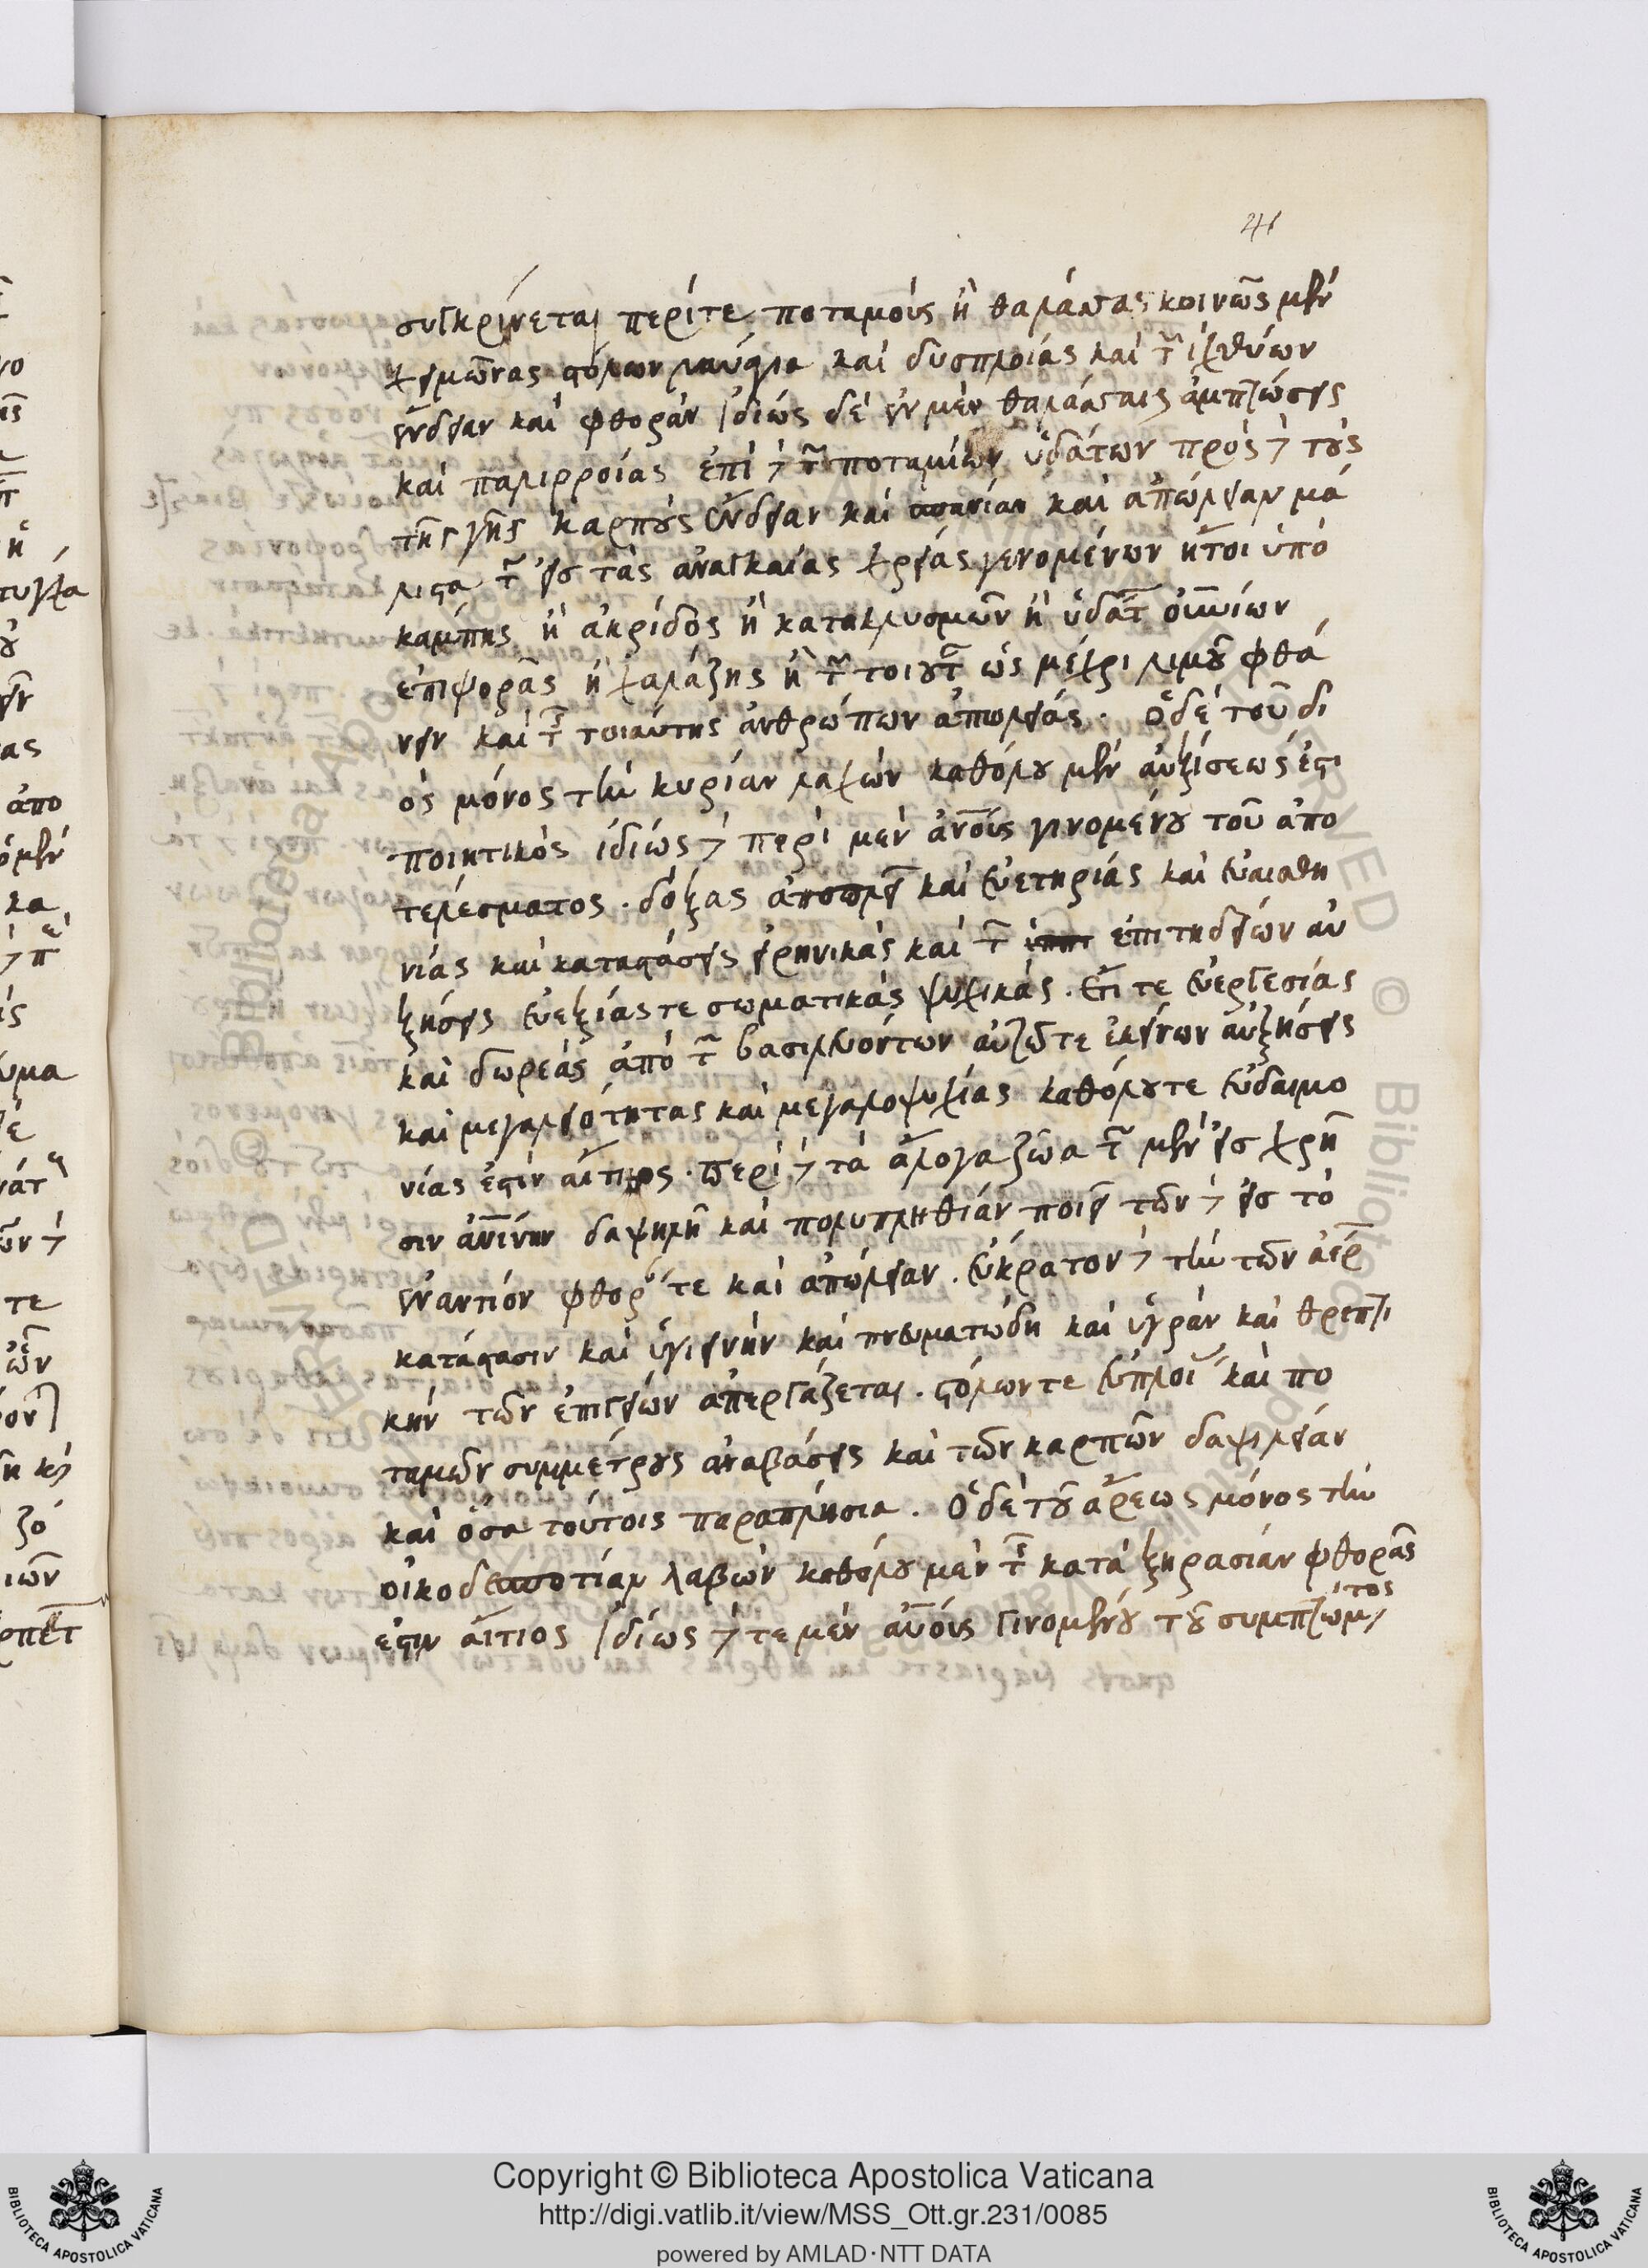 41
συγκρίνεται περίτε ποταμοὺς ἢ θαλάσσας κοινῶς μὲν
χειμῶνας στόλων ναυάγια καὶ δυσπλοίας καὶ τῶν ἰχθύων
ἔνδειαν καὶ φθορὰν ἰδίως δὲ ἐν μὲν θαλάσσαις ἀμπώσεις
καὶ παλιρροίας ἐπὶ δὲ τῶν ποταμίων ὑδάτων πρὸς δὲ τοὺς
τῆς γῆς καρποὺς ἔνδειαν καὶ σπανίαν καὶ ἀπώλειαν μά
λιστα τῶν εἰς τὰς ἀναγκαίας χρείας γενομένων ἤτοι ὑπὸ
κάμπης ἢ ἀκρίδος ἢ κατακλυσμῶν ἢ ὑδάτων
ἐπιφορᾶς ἢ χαλάζης ἢ τῶν τοιούτων ὡς μέχρι λιμοῦ φθά
νειν καὶ τῆς τοιαύτης ἀνθρώπων ἀπωλείας. ὁ δὲ τοῦ δι
ὸς μόνος τὴν κυρίαν λαχὼν καθόλου μὲν αὐξίσεως ἐστι
ποιητικὸς ἰδίως δὲ περὶ μὲν ἀνους γινομένου τοῦ ἀπο
τελέσματος. δόξας καὶ εὐετηρίας καὶ εὐσταθη
νίας καὶ καταστάσεις εἰρηνικὰς καὶ τῶν ἐπιτηδείων αὐ
ξήσεις εὐεξίας τε σωματικὰς ψυχικάς. ἔτι τε εὐεργεσίας
καὶ δωρεὰς ἀπὸ τῶν βασιλευόντων αὐτῶν τε ἐκείνων αὐξήσεις
καὶ μεγαλειότητας καὶ μεγαλοψυχίας καθόλου τε εὐδαιμο
νίας ἐστὶν αἴτιος. περὶ δὲ τὰ ἄλογα ζῶα τῶν μὲν εἰς χρῆ
σιν ἀνίνην δαψηλῆ καὶ πολυπληθίαν ποιεῖ τῶν δὲ εἰς τὸ
ἐναντίον φθοράν τε καὶ ἀπώλειαν. εὔκρατον δὲ τὴν τῶν ἀέρων
κατάστασιν καὶ ὑγιεινὴν καὶ πνευματώδη καὶ ὑγρὰν καὶ θρεπτι
κὴν τῶν ἐπιγείων ἀπεργάζεται. στόλων τε εὐπλοίας καὶ πο
ταμῶν συμμέτρους ἀναβάσεις καὶ τῶν καρπῶν δαψιλείαν
καὶ ὅσα τούτοις παραπλήσια. ὁ δὲ τοῦ ἄρεως μόνος τὴν
οἰκοδεσποτίαν λαβὼν καθόλου μὲν τῆς κατὰ ξηρασίαν φθορᾶς
ἐστιν αἴτιος ἰδίως δὲ τε μὲν ἀνους γινομένου τοῦ συμπτώματος
Copyright © Biblioteca Apostolica Vaticana
http://digi.vatlib.it/view/MSS_Ott.gr.231/0085
powered by AMLAD·NTT DATA
BIBLIOTECA APOSTOLICA VATICANA
BIBLIOTECA APOSTOLICA VATICANA